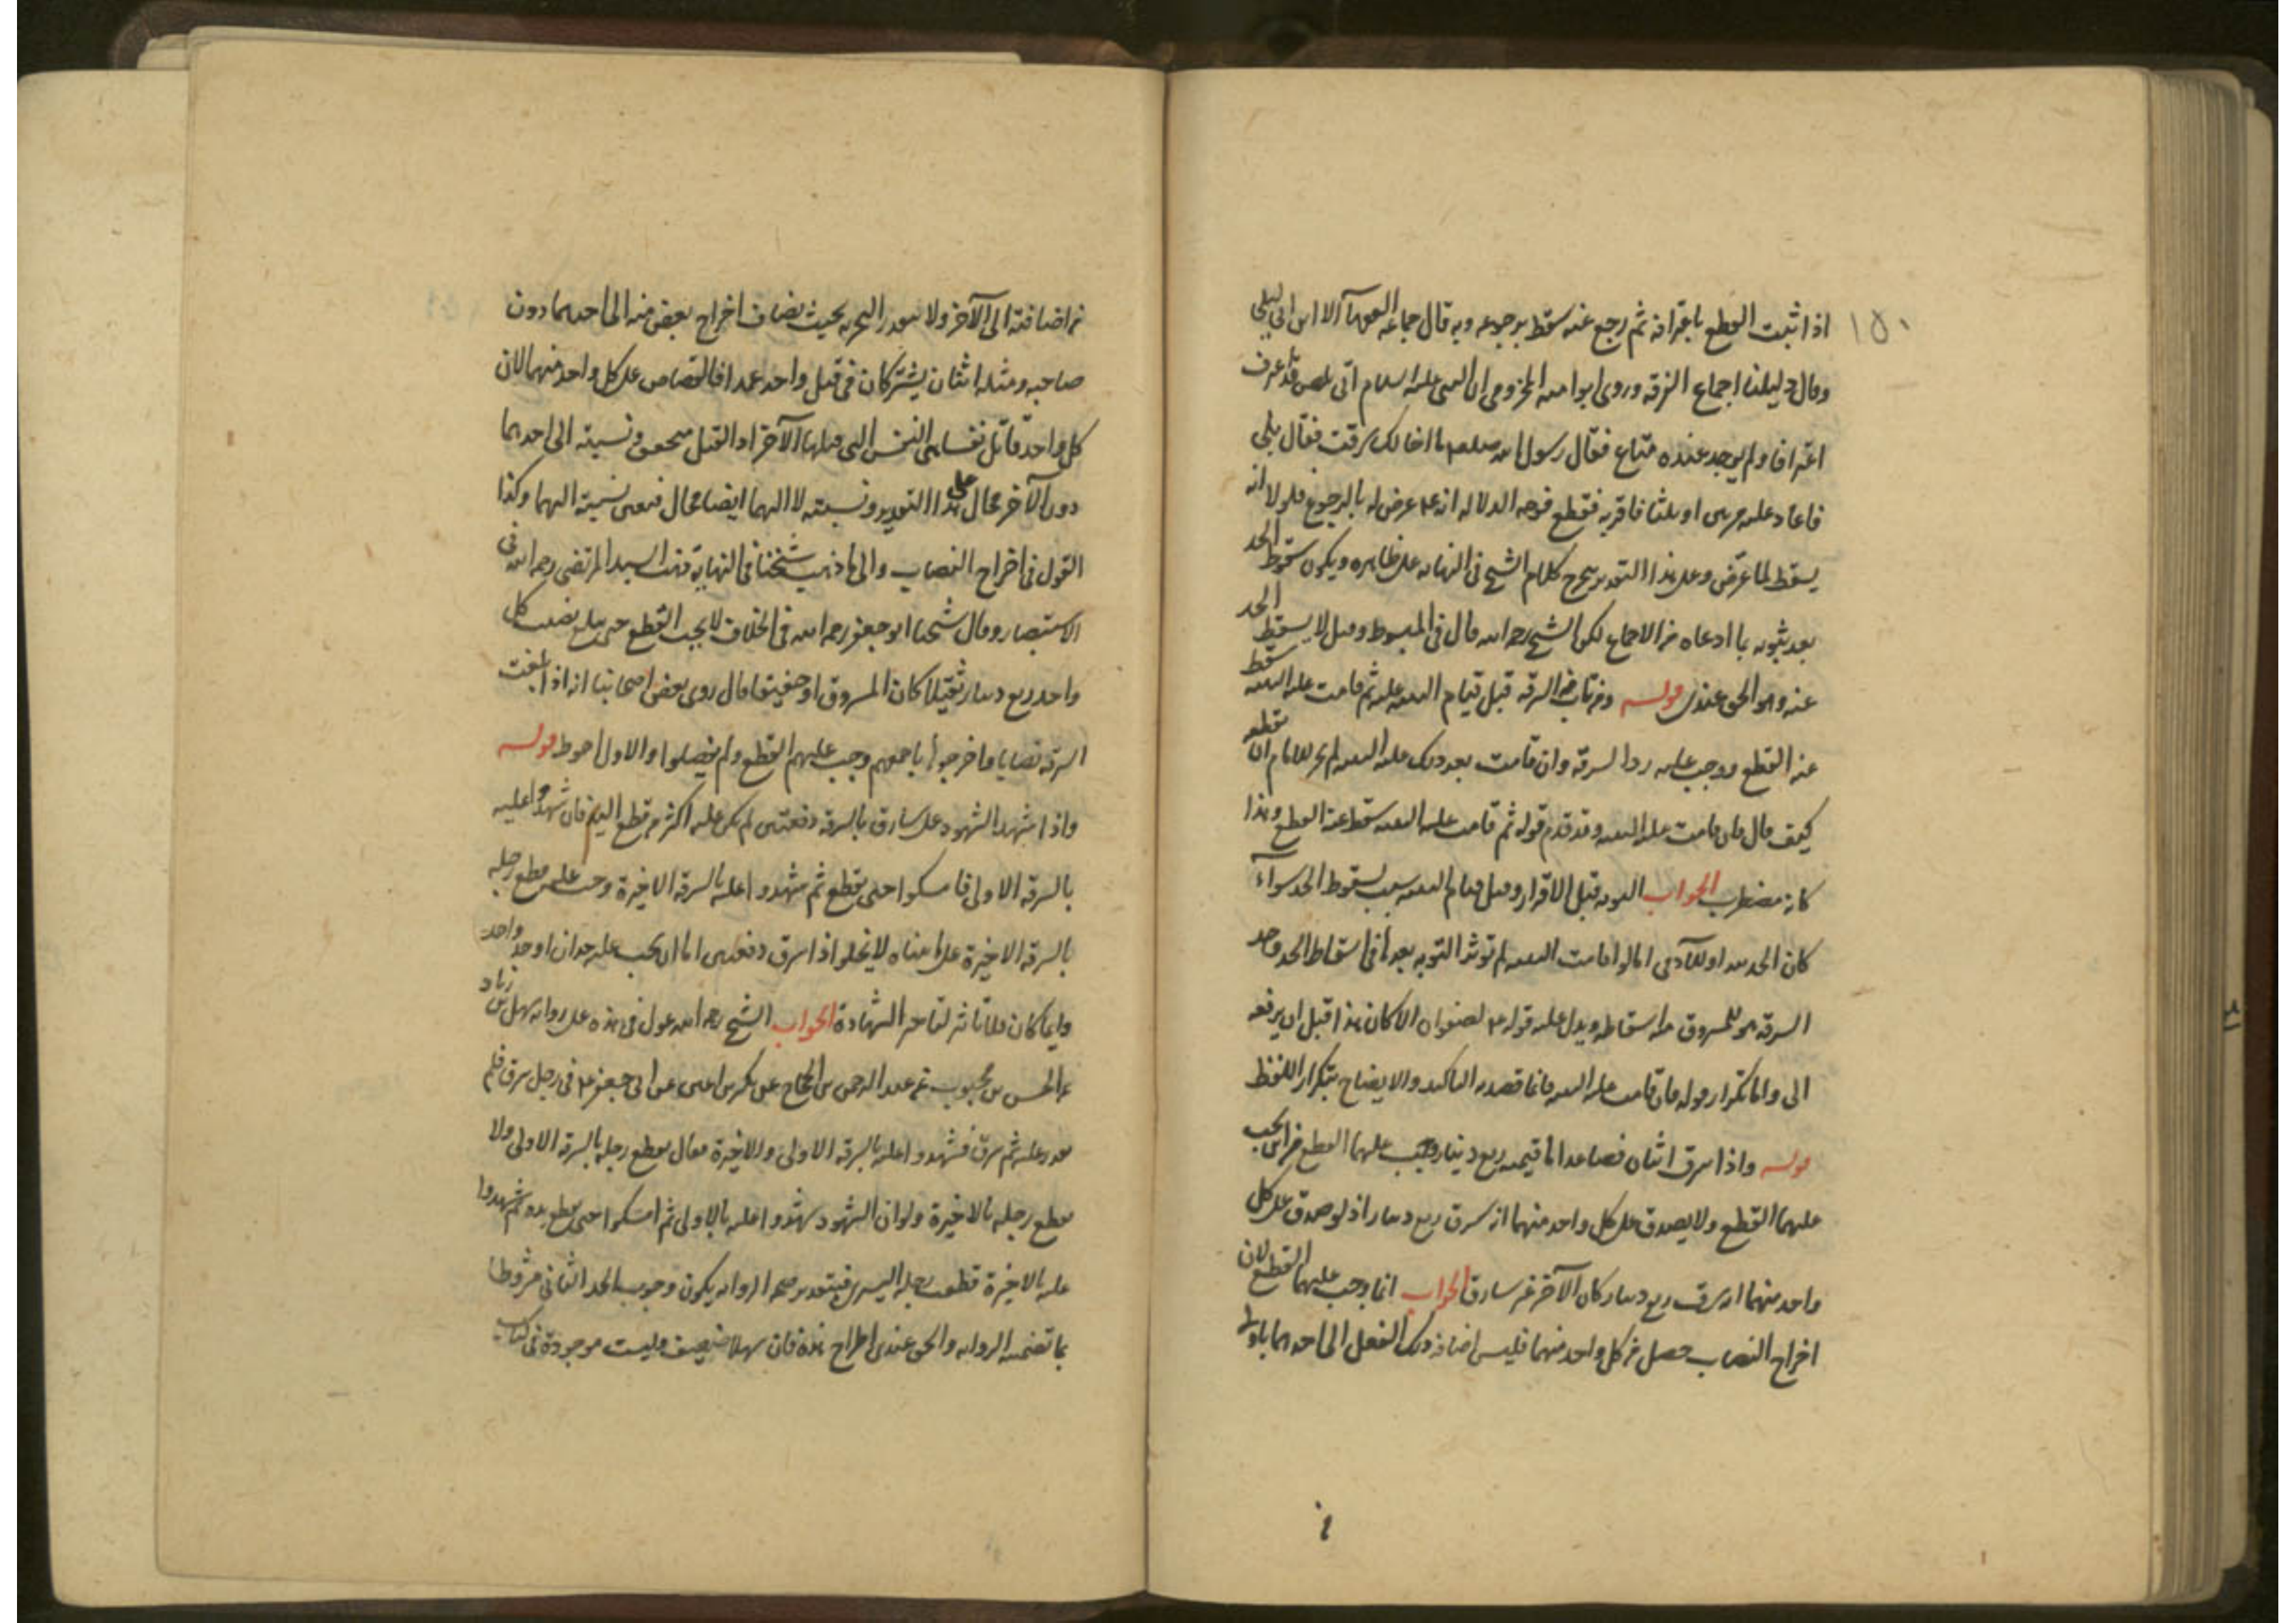 ١٥٠
اذا ثبت القطع باعترافه ثم رجع عنه سقط برجوعه وبه قال جماعة الفقهاء الا ابن ابي ليلى
وقال دليلنا اجماع الفرقة وروى ابو امية المخزومي ان النبي عليه السلام اتى بلص قد عرف
اعترافا ولم يوجد عنده متاع فقال رسول الله صلعم ما اخالك سرقت فقال بلى
فاعاد عليه مرتين او ثلثا فاقر به فقطع فوجه الدلالة انه ع عرض له بالرجوع فلولا انه
يسقط لما عرض وعلى هذا التقدير يخرج كلام الشيخ في النهاية على ظاهره ويكون سقوط الحد
بعد ثبوته بما ادعاه من الاجماع لكن الشيخ رحمه الله قال في المبسوط وقيل لا يسقط الحد
عنه وهو الحق عندي قوله ومن تاب من السرقة قبل قيام البينة عليه ثم قامت عليه البينة سقط
عنه القطع ووجب عليه رد السرقة وان قامت بعد ذلك عليه البينة لم يجز للامام ان يقطعه
كيف قال فان قامت عليه البينة وقد قدم قوله ثم قامت عليه البينة سقط عنه القطع وهذا
كانه مضطرب الجواب التوبة قبل الاقرار وقبل قيام البينة سبب لسقوط الحد سواء
كان الحد لله او للآدمي اما لو اقامت البينة لم تؤثر التوبة بعدها في اسقاط الحد وحد
السرقة هو للمسروق منه اسقاطه ويدل عليه قوله ع لصفوان الا كان هذا قبل ان يرفعه
الى واما تكرار قوله فان قامت عليه البينة فانما قصد به التاكيد والايضاح بتكرار اللفظ
قوله واذا سرق اثنان فصاعدا ما قيمته ربع دينار وجب عليهما القطع من اين يجب
عليهما القطع ولا يصدق على كل واحد منهما انه سرق ربع دينار اذ لو صدق على كل
واحد منهما انه سرق ربع دينار كان الآخر غير سارق الجواب انما وجب عليهما القطع لان
اخراج النصاب حصل من كل واحد منهما فليس اضافة ذلك الفعل الى احدهما باولى
من اضافته الى الآخر ولا تقدر التجزية بحيث يضاف اخراج بعض منه الى احدهما دون
صاحبه ومثله اثنان يشتركان في قتل واحد عمدا فالقصاص على كل واحد منهما لان
كل واحد قاتل نفسا هي النفس التي قتلها الآخر اذ القتل متحقق ونسبته الى احدهما
دون الآخر محال على هذا التقدير ونسبته لا اليهما ايضا محال فتعين نسبته اليهما وكذا
القول في اخراج النصاب والى ما ذهب شيخنا في النهاية ذهب السيد المرتضى رحمه الله في
الاستبصار وقال شيخنا ابو جعفر رحمه الله في الخلاف لا يجب القطع حتى يبلغ نصيب كل
واحد ربع دينار ثقيلا كان المسروق او خفيفا قال روى بعض اصحابنا انه اذا بلغت
السرقة نصابا واخرجوا باجمعهم وجب عليهم القطع ولم يفصلوا والاول احوط قوله
واذا شهد الشهود على سارق بالسرقة دفعتين لم يكن عليه اكثر من قطع اليد فان شهدوا عليه
بالسرقة الاولى فامسكوا حتى يقطع ثم شهدوا عليه بالسرقة الاخيرة وجب عليه قطع رجله
بالسرقة الاخيرة على ما بيناه لا يخلو اذا سرق دفعتين اما ان يجب عليه حدان او حد واحد
وايما كان فلا تاثير لتاخر الشهادة الجواب الشيخ رحمه الله عول في هذه على رواية سهل بن زياد
عن الحسن بن محبوب عن عبد الرحمن بن الحجاج عن بكير بن اعين عن ابي جعفر ع في رجل سرق فلم
يقدر عليه ثم سرق فشهدوا عليه بالسرقة الاولى والاخيرة فقال يقطع رجله بالسرقة الاولى ولا
يقطع رجله بالاخيرة ولو ان الشهود شهدوا عليه بالاولى ثم امسكوا حتى يقطع يده ثم شهدوا
عليه بالاخيرة قطعت رجله اليسرى فبتقدير صحة الرواية يكون وجوب الحد الثاني مشروطا
بما تضمنته الرواية والحق عندي اطراح هذه فان سهلا ضعيف وليست موجودة في كتاب